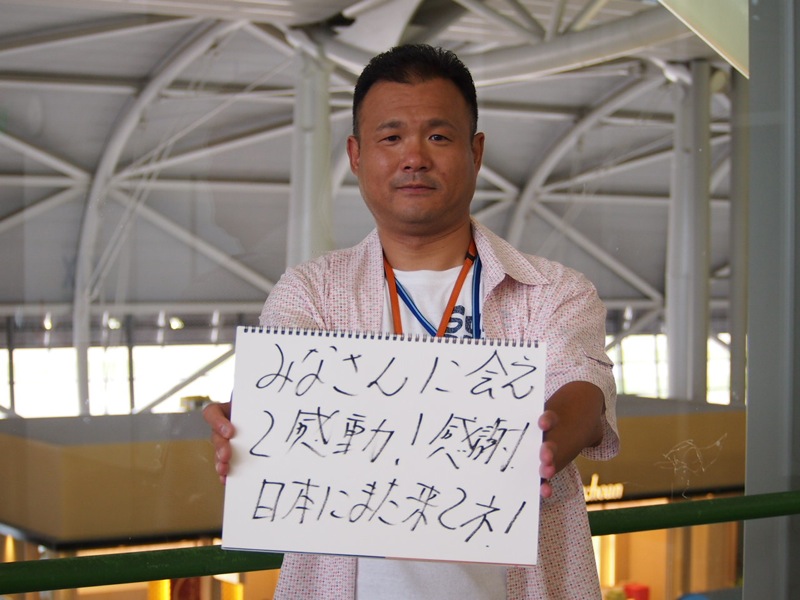 みなさんに会え
て感動！感謝！
日本にまた来てネ！